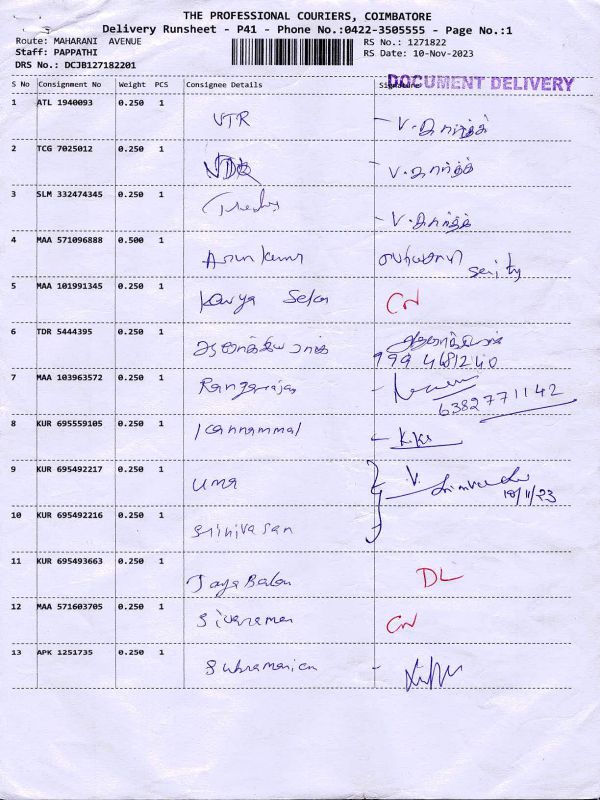 THE PROFESSIONAL COURIERS, COIMBATORE
Delivery Runsheet - P41 - Phone No.:0422-3505555 - Page No.:1
Route: MAHARANI AVENUE
RS No.: 1271822
Staff: PAPPATHI
RS Date: 10-Nov-2023
DRS No.: DCJB127182201
DOCUMENT DELIVERY
S No Consignment No Weight PCS Consignee Details Signature
1 ATL 1940093 0.250 1 VTR V. கார்த்திக்
2 TCG 7025012 0.250 1 V. கார்த்திக்
3 SLM 332474345 0.250 1 V. கார்த்திக்
4 MAA 571096888 0.500 1 Arun Kumar
5 MAA 101991345 0.250 1 Kavya Sekar CN
6 TDR 5444395 0.250 1
999 4681240
7 MAA 103963572 0.250 1 Rangarajan
6382771142
8 KUR 695559105 0.250 1 Kannammal
9 KUR 695492217 0.250 1 uma V.
10/11/23
10 KUR 695492216 0.250 1 Srinivasan
11 KUR 695493663 0.250 1 Jaya Balan DL
12 MAA 571603705 0.250 1 Sivaraman CN
13 APK 1251735 0.250 1 Subramanian